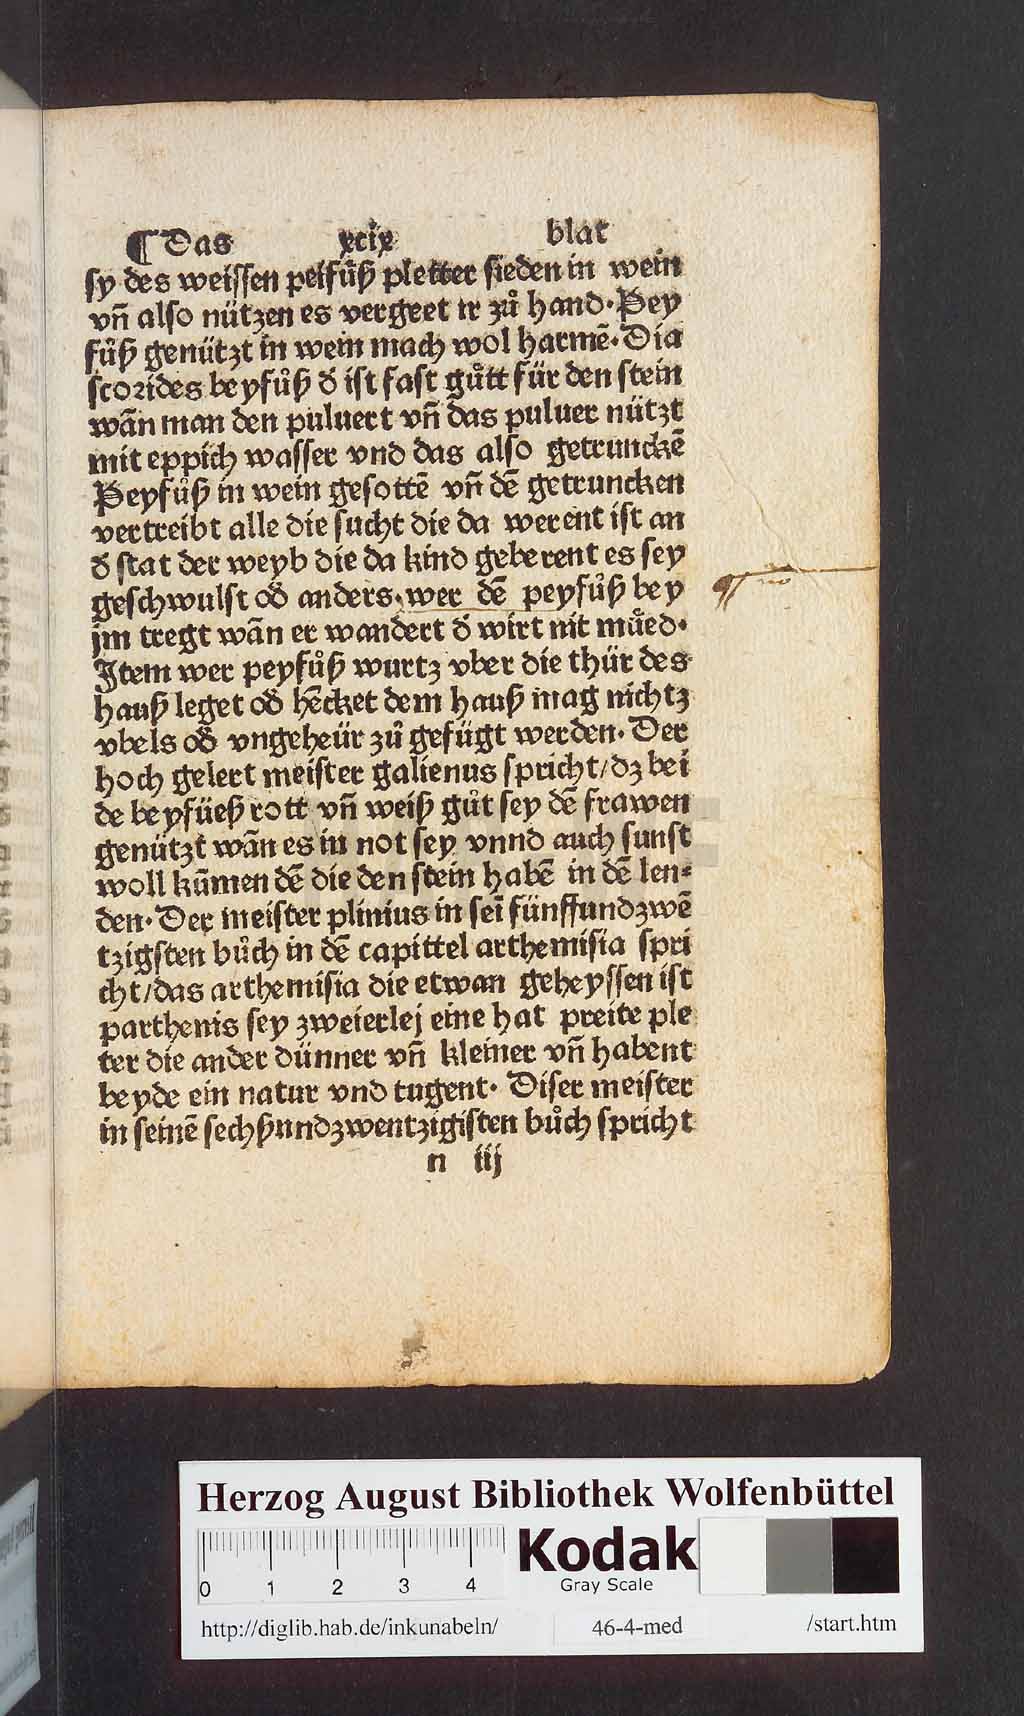 ¶ Das xcix blat
sy des weissen peifuͦß pletter sieden in wein
vn̄ also nützen es vergeet ir zuͦ hand· Pey
fuͦß genützt in wein mach wol harmē· Dia
scorides beyfuͦß d̄ ist fast guͦtt für den stein
wān man den puluert vn̄ das puluer nützt
mit eppich wasser vnd das also getrunckē
Peyfuͦß in wein gesottē vn̄ dē getruncken
vertreibt alle die sucht die da werent ist an
d̄ stat der weyb die da kind geberent es sey
geschwulst od̄ anders· wer dē peyfuͦß bey
jm tregt wān er wandert d̄ wirt nit muͤed·
Item wer peyfuͦß wurtz vber die thür des
hauß leget od̄ hēcket dem hauß mag nichtz
vbels od̄ vngeheür zuͦ gefügt werden· Der
hoch gelert meister galienus spricht/dz bei
de beyfüeß rott vn̄ weiß guͦt sey dē frawen
genützt wān es in not sey vnnd auch sunst
woll kūmen dē die den stein habē in dē len⸗
den· Der meister plinius in seī fünffundzwē
tzigsten buͦch in dē capittel arthemisia spri
cht/das arthemisia die etwan geheyssen ist
parthenis sey zweierlej eine hat preite ple
ter die ander dünner vn̄ kleiner vn̄ habent
beyde ein natur vnd tugent· Diser meister
in seinē sechßundzwentzigisten buͦch spricht
n iij
Herzog August Bibliothek Wolfenbüttel
0 1 2 3 4
Kodak
Gray Scale
http://diglib.hab.de/inkunabeln/ 46-4-med /start.htm